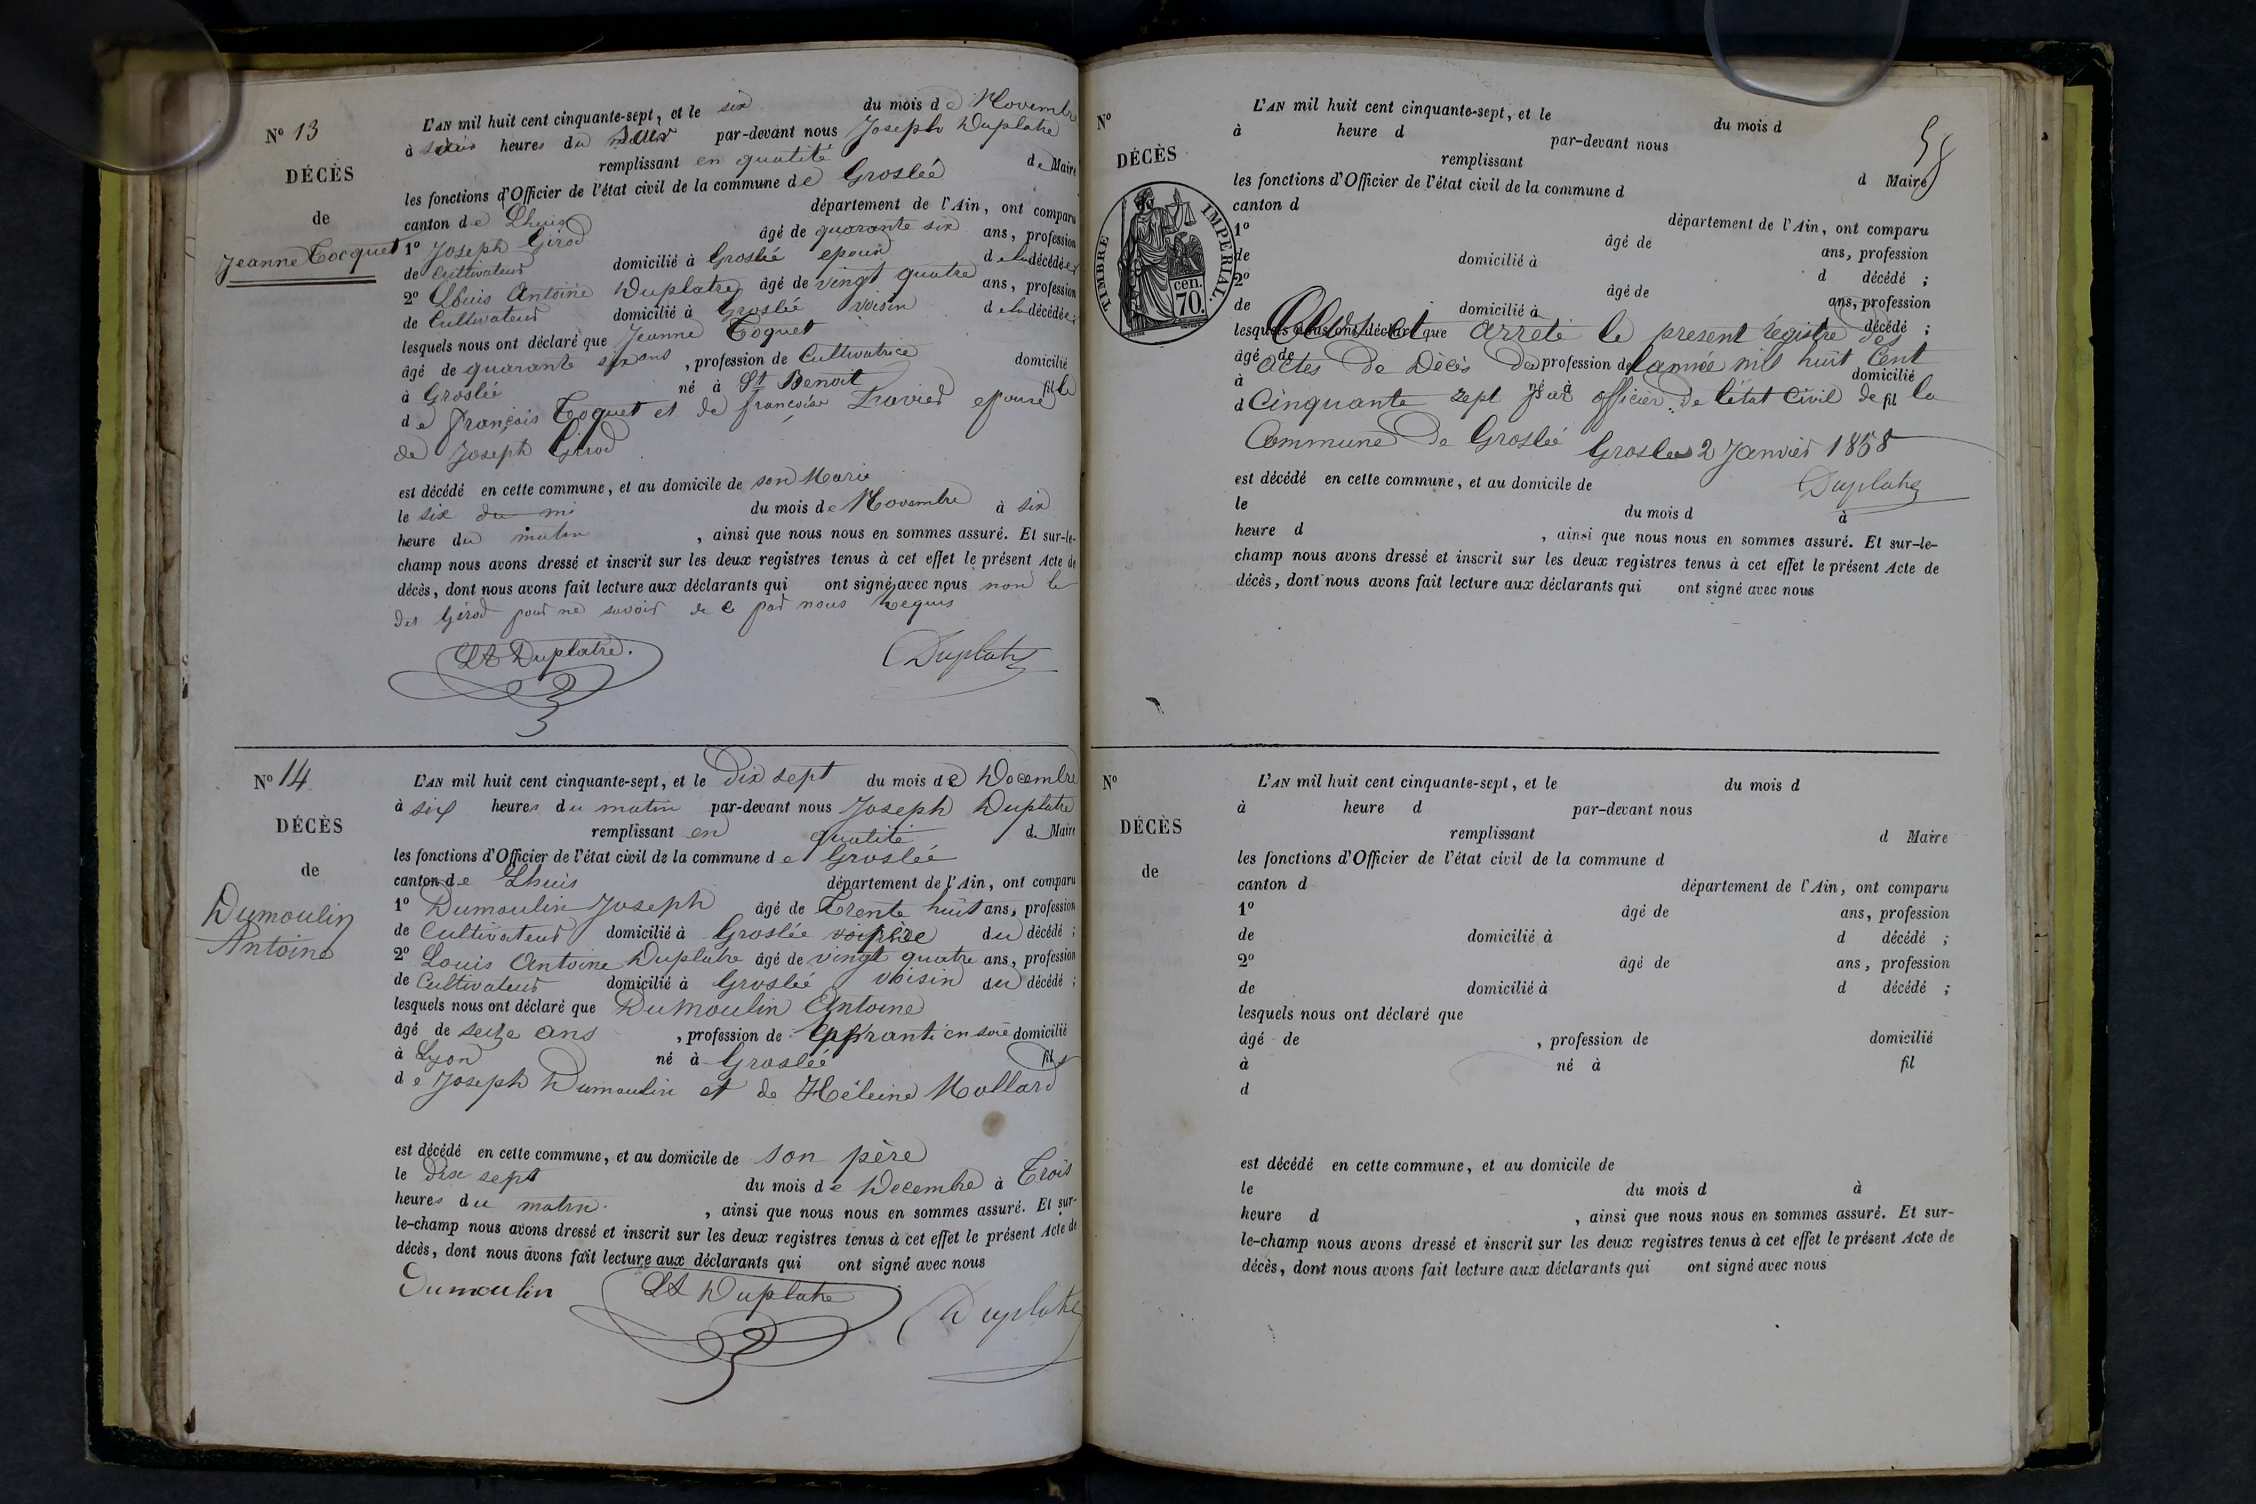 N° 13
DÉCÈS
de
Jeanne Cocquet
L'AN mil huit cent cinquante-sept, et le six du mois de Novembre
à heures du soir par-devant nous Joseph Duplatre
remplissant en qualité de Maire
les fonctions d'Officier de l'état civil de la commune de Groslée
canton de Lhuis département de l'Ain, ont comparu
1° Joseph Girod âgé de quarante six ans, profession
de Cultivateur domicilié à Groslée epoux de la décédée;
2° Louis Antoine Duplatre âgé de vingt quatre ans, profession
de Cultivateur domicilié à Groslée voisin de la décédée;
lesquels nous ont déclaré que Jeanne Coquet
âgé de quarante six ans, profession de Cultivatrice domicilié
à Groslée né à St Benoit fille
de françois Coquet et de françoise epouse
de Joseph Girod
est décédé en cette commune, et au domicile de son Marie
le six du mi du mois de Novembre à six
heure du matin, ainsi que nous nous en sommes assuré. Et sur-le-
champ nous avons dressé et inscrit sur les deux registres tenus à cet effet le présent Acte de
décès, dont nous avons fait lecture aux déclarants qui ont signé avec nous non le
dit Girod pour ne savoir de ce par nous requis
LA Duplatre. Duplatre
N° 14
DÉCÈS
de
Dumoulin
Antoine
L'AN mil huit cent cinquante-sept, et le Dix sept du mois de Decembre
à six heures du matin par-devant nous Joseph Duplatre
remplissant en qualité de Maire
les fonctions d'Officier de l'état civil de la commune de Groslée
canton de Lhuis département de l'Ain, ont comparu
1° Dumoulin Joseph âgé de Trente huit ans, profession
de Cultivateur domicilié à Groslée père du décédé;
2° Louis Antoine Duplatre âgé de vingt quatre ans, profession
de Cultivateur domicilié à Groslée voisin du décédé;
lesquels nous ont déclaré que Dumoulin Antoine
âgé de seize ans, profession de Apprenti en soie domicilié
à Lyon né à Groslée fils
de Joseph Dumoulin et de Héleine Mollard
est décédé en cette commune, et au domicile de son père
le Dix sept du mois de Decembre à Trois
heures du matin, ainsi que nous nous en sommes assuré. Et sur-
le-champ nous avons dressé et inscrit sur les deux registres tenus à cet effet le présent Acte de
décès, dont nous avons fait lecture aux déclarants qui ont signé avec nous
Dumoulin LA Duplatre Duplatre
58
N°
DÉCÈS
TIMBRE IMPERIAL.
cen. 70.
L'AN mil huit cent cinquante-sept, et le du mois d
à heure d par-devant nous
remplissant d Maire
les fonctions d'Officier de l'état civil de la commune d
canton d département de l'Ain, ont comparu
1° âgé de ans, profession
de domicilié à d décédé;
2° âgé de ans, profession
de domicilié à décédé;
lesquels nous ont déclaré que
âgé de profession de domicilié
à né à fil
d
Clos et arreté le present registre des
actes de Décès de l'année mil huit Cent
Cinquante sept par officier de l'état Civil de la
Commune de Groslée Groslée 2 Janvier 1858
Duplatre
est décédé en cette commune, et au domicile de
le du mois d à
heure d, ainsi que nous nous en sommes assuré. Et sur-le-
champ nous avons dressé et inscrit sur les deux registres tenus à cet effet le présent Acte de
décès, dont nous avons fait lecture aux déclarants qui ont signé avec nous
N°
DÉCÈS
de
L'AN mil huit cent cinquante-sept, et le du mois d
à heure d par-devant nous
remplissant d Maire
les fonctions d'Officier de l'état civil de la commune d
canton d département de l'Ain, ont comparu
1° âgé de ans, profession
de domicilié à d décédé;
2° âgé de ans, profession
de domicilié à d décédé;
lesquels nous ont déclaré que
âgé de, profession de domicilié
à né à fil
d
est décédé en cette commune, et au domicile de
le du mois d à
heure d, ainsi que nous nous en sommes assuré. Et sur-
le-champ nous avons dressé et inscrit sur les deux registres tenus à cet effet le présent Acte de
décès, dont nous avons fait lecture aux déclarants qui ont signé avec nous